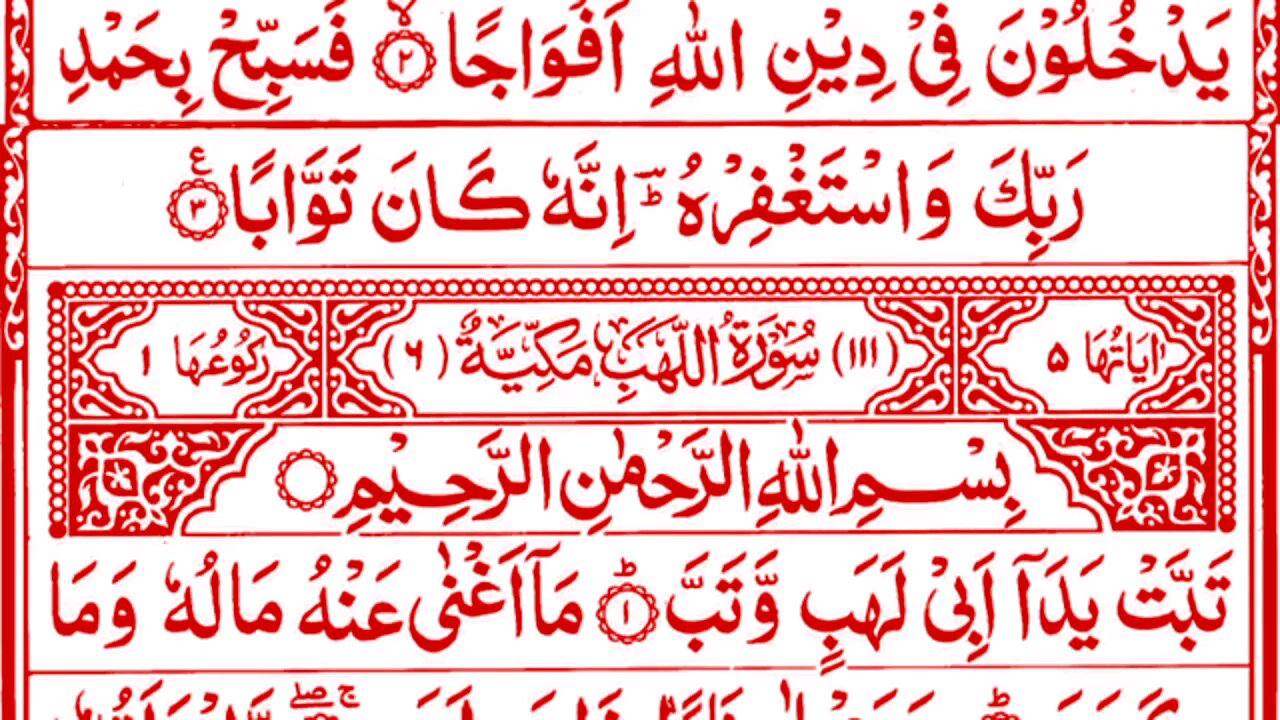 يَدْخُلُوْنَ فِيْ دِيْنِ اللّٰهِ اَفْوَاجًا ۙ﴿۲﴾ فَسَبِّحْ بِحَمْدِ
رَبِّكَ وَاسْتَغْفِرْهُ ؕ اِنَّهٗ كَانَ تَوَّابًا ﴿۳﴾ ع
اٰيَاتُهَا ۵ (۱۱۱) سُوْرَةُ اللَّهَبِ مَكِّيَّةٌ (۶) رُكُوْعُهَا ۱
بِسْمِ اللّٰهِ الرَّحْمٰنِ الرَّحِيْمِ
تَبَّتْ يَدَآ اَبِيْ لَهَبٍ وَّتَبَّ ؕ﴿۱﴾ مَآ اَغْنٰى عَنْهُ مَالُهٗ وَمَا